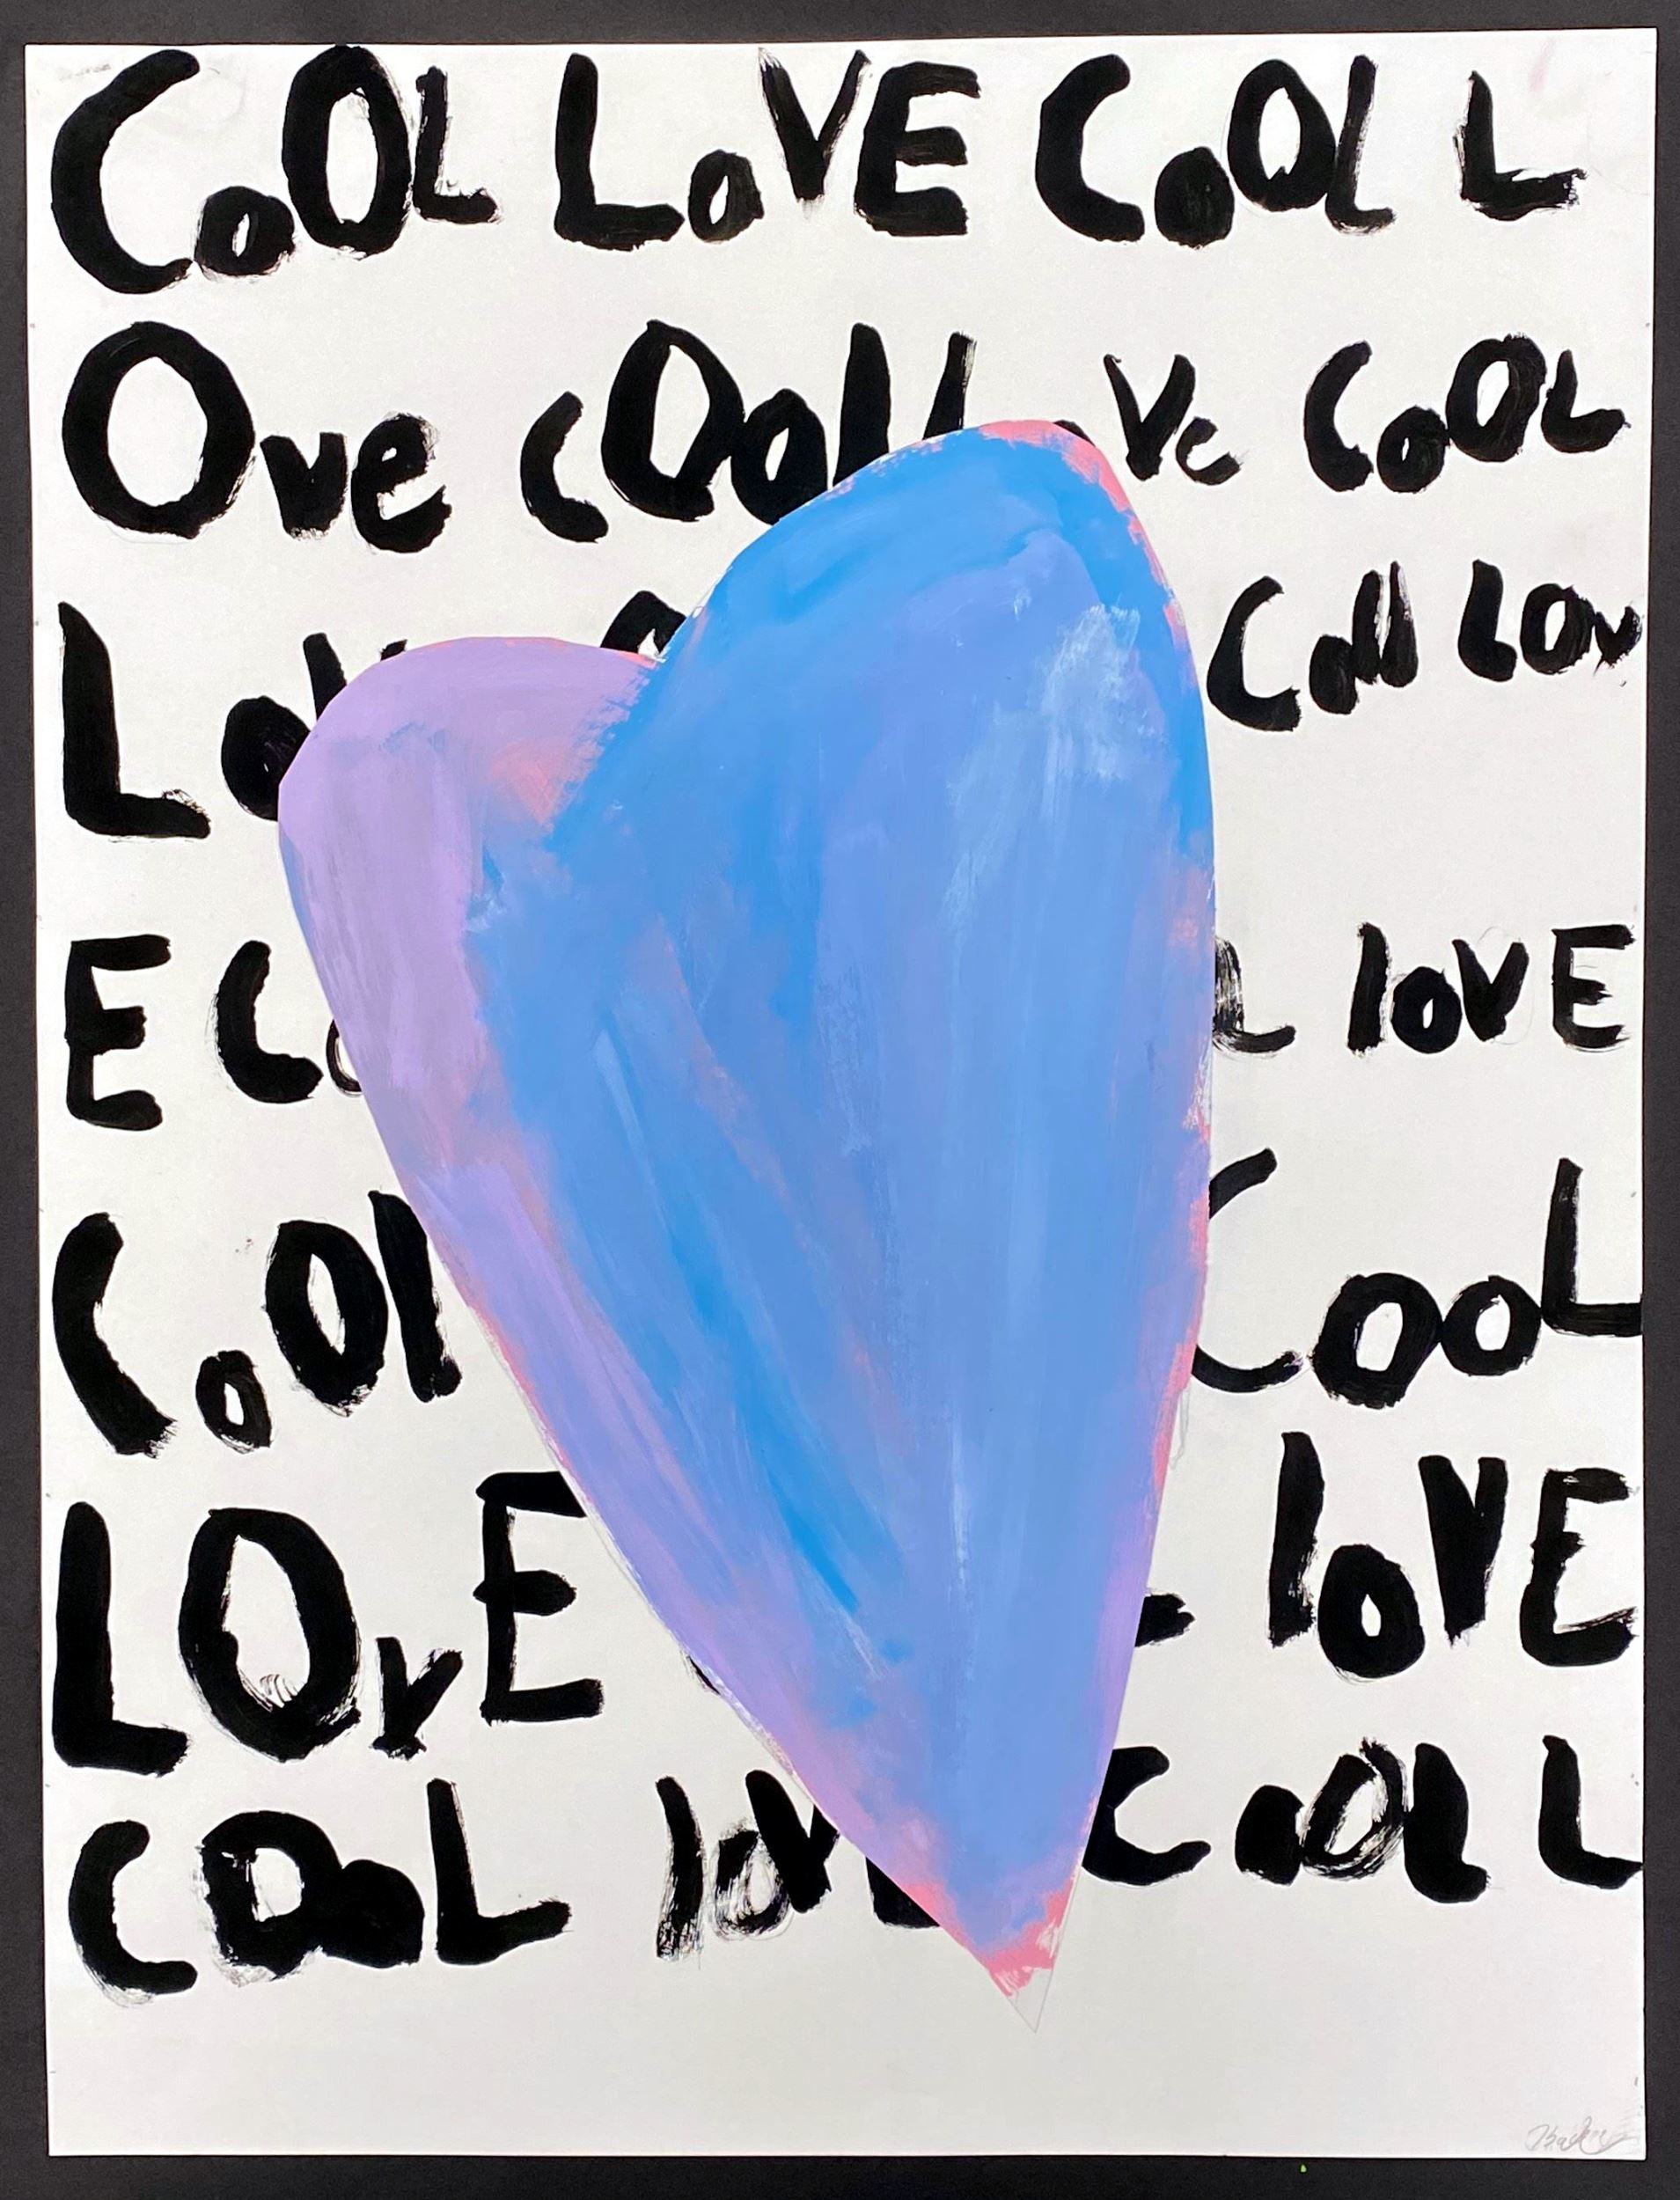 CoOL LoVE CoOl L
Ove cOol L ve CoOL
Lov Cool Lov
E Co L loVE
CoOl CooL
LOvE loVE
COoL lovE CoOl L